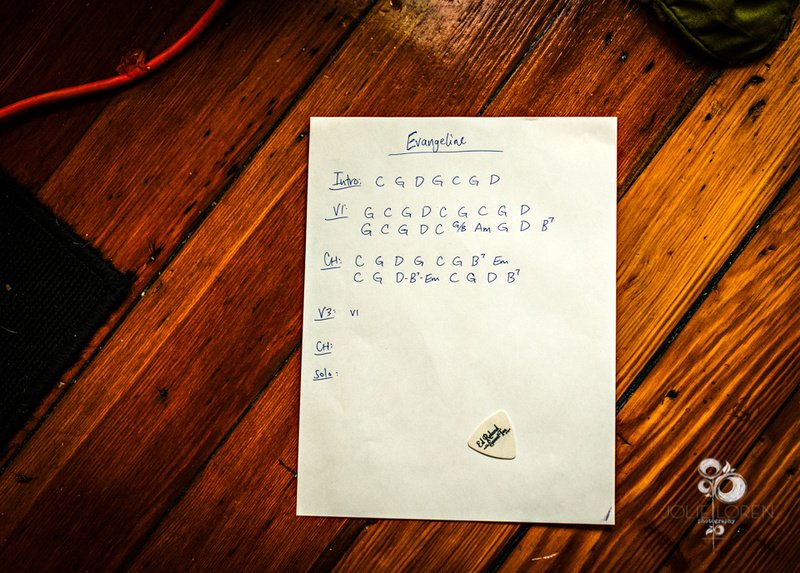 Evangeline
Intro: C G D G C G D
V1: G C G D C G C G D
G C G D C G/B Am G D B7
CH: C G D G C G B7 Em
C G D-B7-Em C G D B7
V3: V1
CH:
Solo:
Ed Roland
JOLIE LOREN
photography